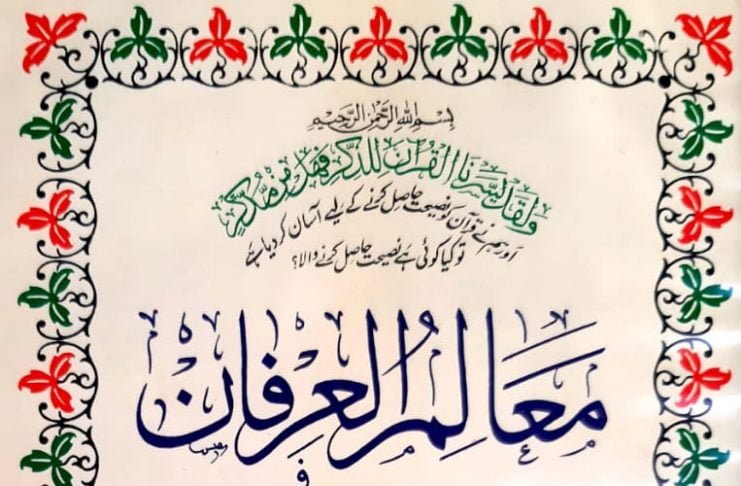 بِسْمِ اللهِ الرَّحْمٰنِ الرَّحِيْمِ
وَلَقَدْ يَسَّرْنَا الْقُرْآنَ لِلذِّكْرِ فَهَلْ مِنْ مُّدَّكِرٍ
اور ہم نے قرآن کو نصیحت حاصل کرنے کے لیے آسان کر دیا ہے
تو کیا کوئی ہے نصیحت حاصل کرنے والا؟
مَعَالِمُ الْعِرْفَان
فی